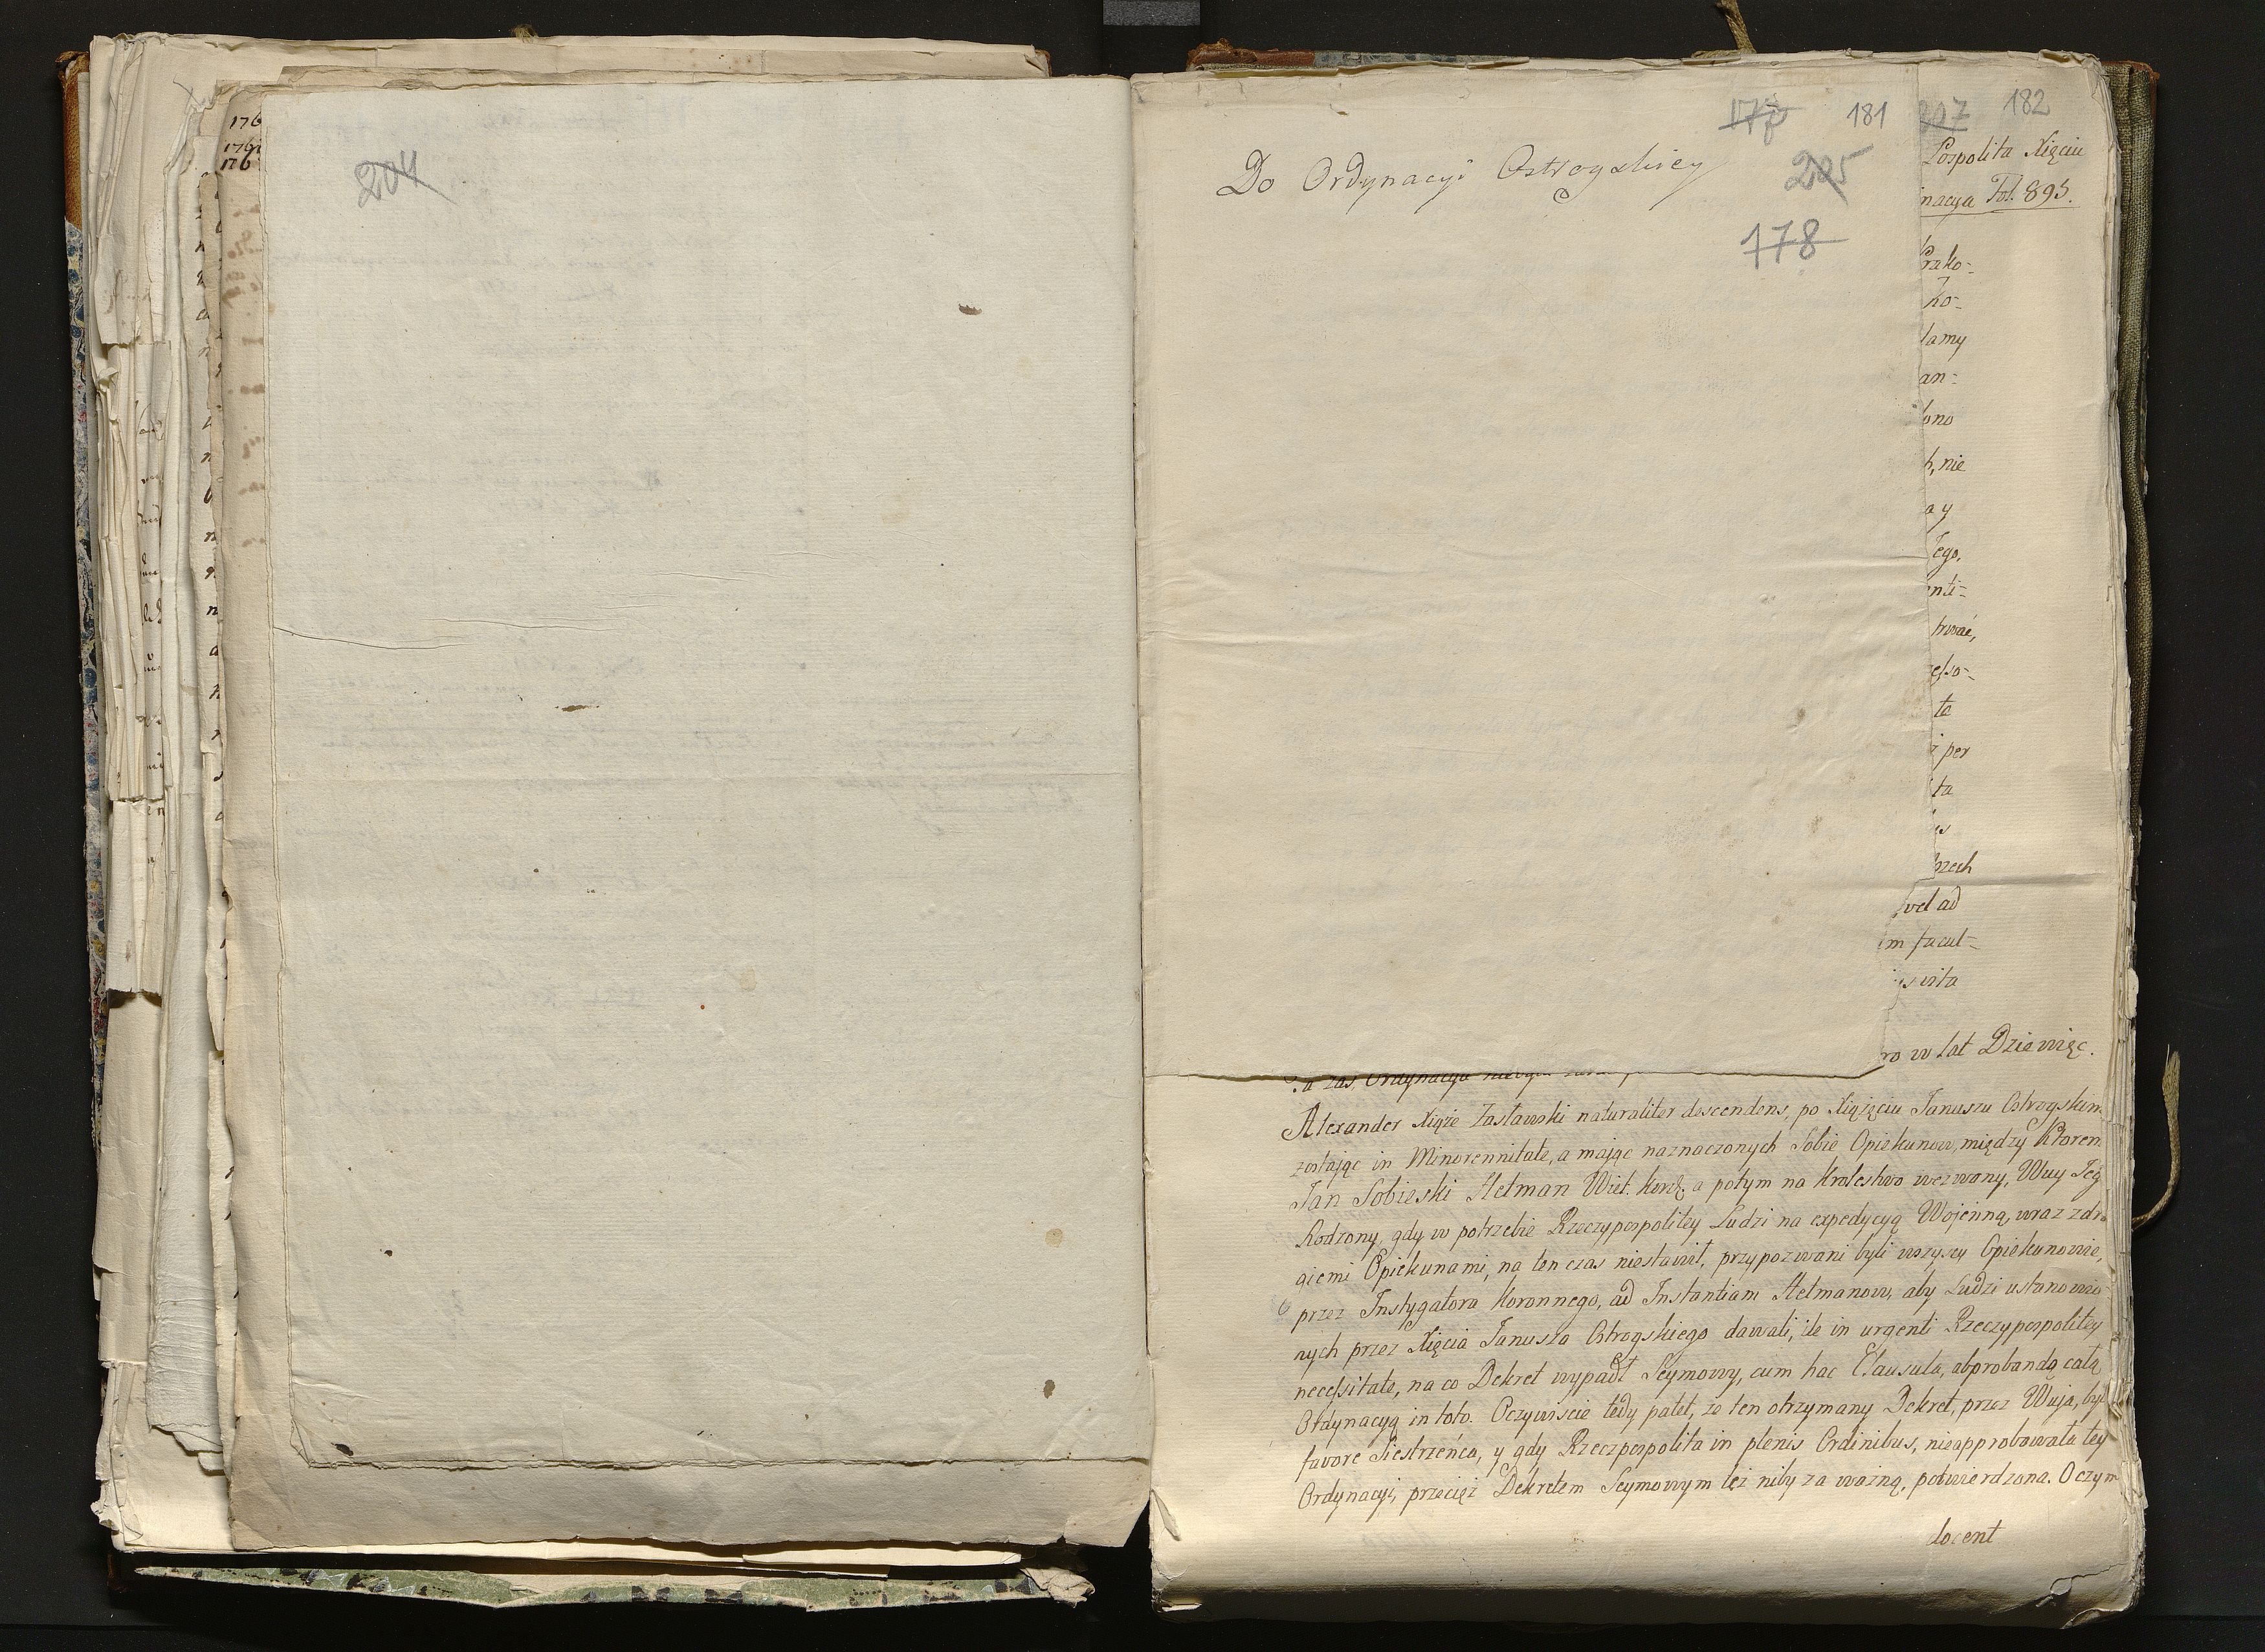 176
1761
176
204
177 181 207 182
Do Ordynacyi Ostrogskiey
205
178
Pospolita Xięciu
nacya Fol. 895.
Prko-
ko-
lamy
an-
ono
h, nie
a y
Jego,
nti-
trwać,
elso-
te
i per
ta
us
brzech
vel ad
m facul-
is vita
ro w lat Dziewięc.
a zas Ordynacya
Alexander Xiąże Zasławski naturaliter descendens, po Xiążęciu Januszu Ostrogskim
zostając in Minorennitate, a mając naznaczonych Sobie Opiekunow, między Ktorem
Jan Sobieski Hetman Wiel. Kor. a potym na Krolestwo wezwany, Wuy Jeg
Rodzony, gdy w potrzebie Rzeczypospolitey Ludzi na expedycyą Wojenną, wraz z dru
giemi Opiekunami, na ten czas niestawił, przypozwani byli wszyscy Opiekunowie,
przez Instygatora Koronnego, ad Instantiam Hetmanow, aby Ludzi ustanowio-
nych przez Xięcia Janusza Ostrogskiego dawali, ile in urgenti Rzeczypospolitey
necessitate, na co Dekret wypadł Seymowy, cum hac Clausula, abprobando całą
Ordynacyą in toto. Oczywiscie tedy patet, że ten otrzymany Dekret, przez Wuja, był
favore Siestrzeńca, y gdy Rzeczpospolita in plenis Ordinibus, nieapprobowała tey
Ordynacyi, przecięż Dekretem Seymowym też niby za ważną, potwierdzona. O czym
docent